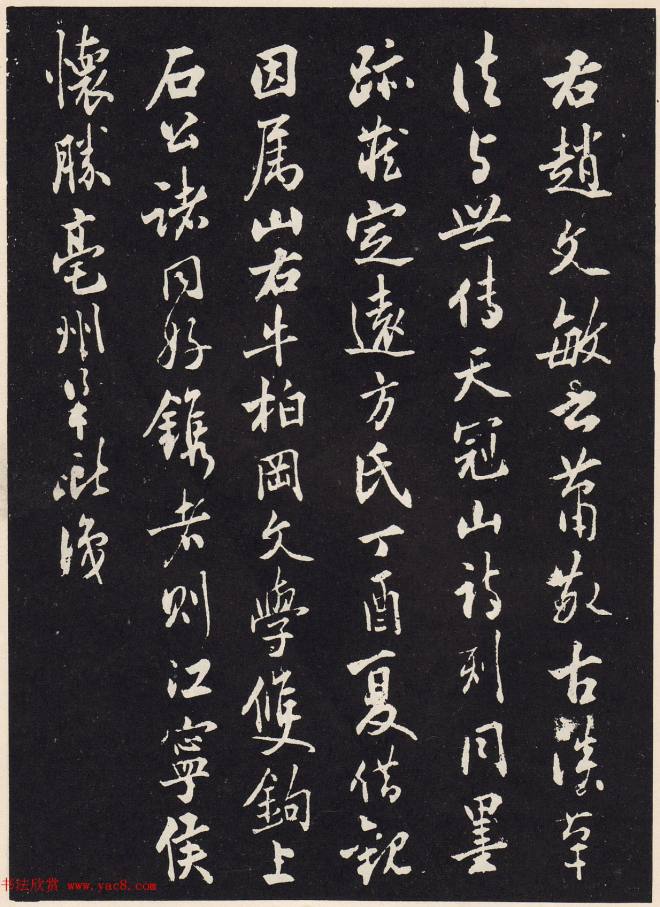 右趙文敏書蕭散古淡草
法与世傳天冠山詩刻同墨
跡藏定遠方氏丁酉夏借觀
因属山右牛柏岡文學雙鉤上
石公諸同好鐫者則江寧侯
懷勝亳州梁巘識
书法欣赏 www.yac8.com